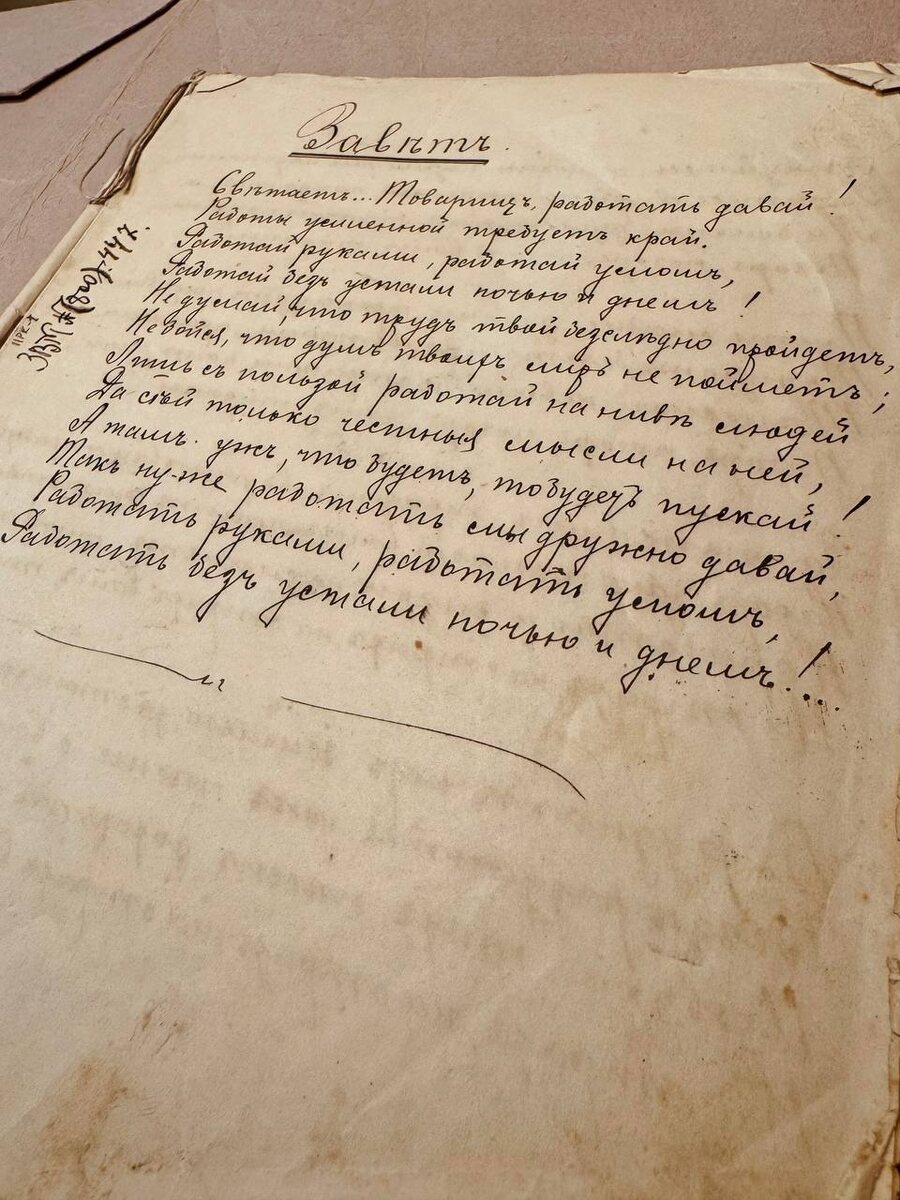 Завѣтъ.
Свѣтаетъ... Товарищъ, работать давай!
Работы усиленной требуетъ край.
Работай руками, работай умомъ,
Работай безъ устали ночью и днемъ!
Не думай, что трудъ твой безслѣдно пройдетъ,
Не бойся, что думъ твоихъ міръ не пойметъ;
Лишь съ пользой работай на нивѣ людей
Да сѣй только честныя мысли на ней,
А тамъ ужъ, что будетъ, то будетъ пускай!
Такъ ну-же работать мы дружно давай,
Работать руками, работать умомъ,
Работать безъ устали ночью и днемъ!...